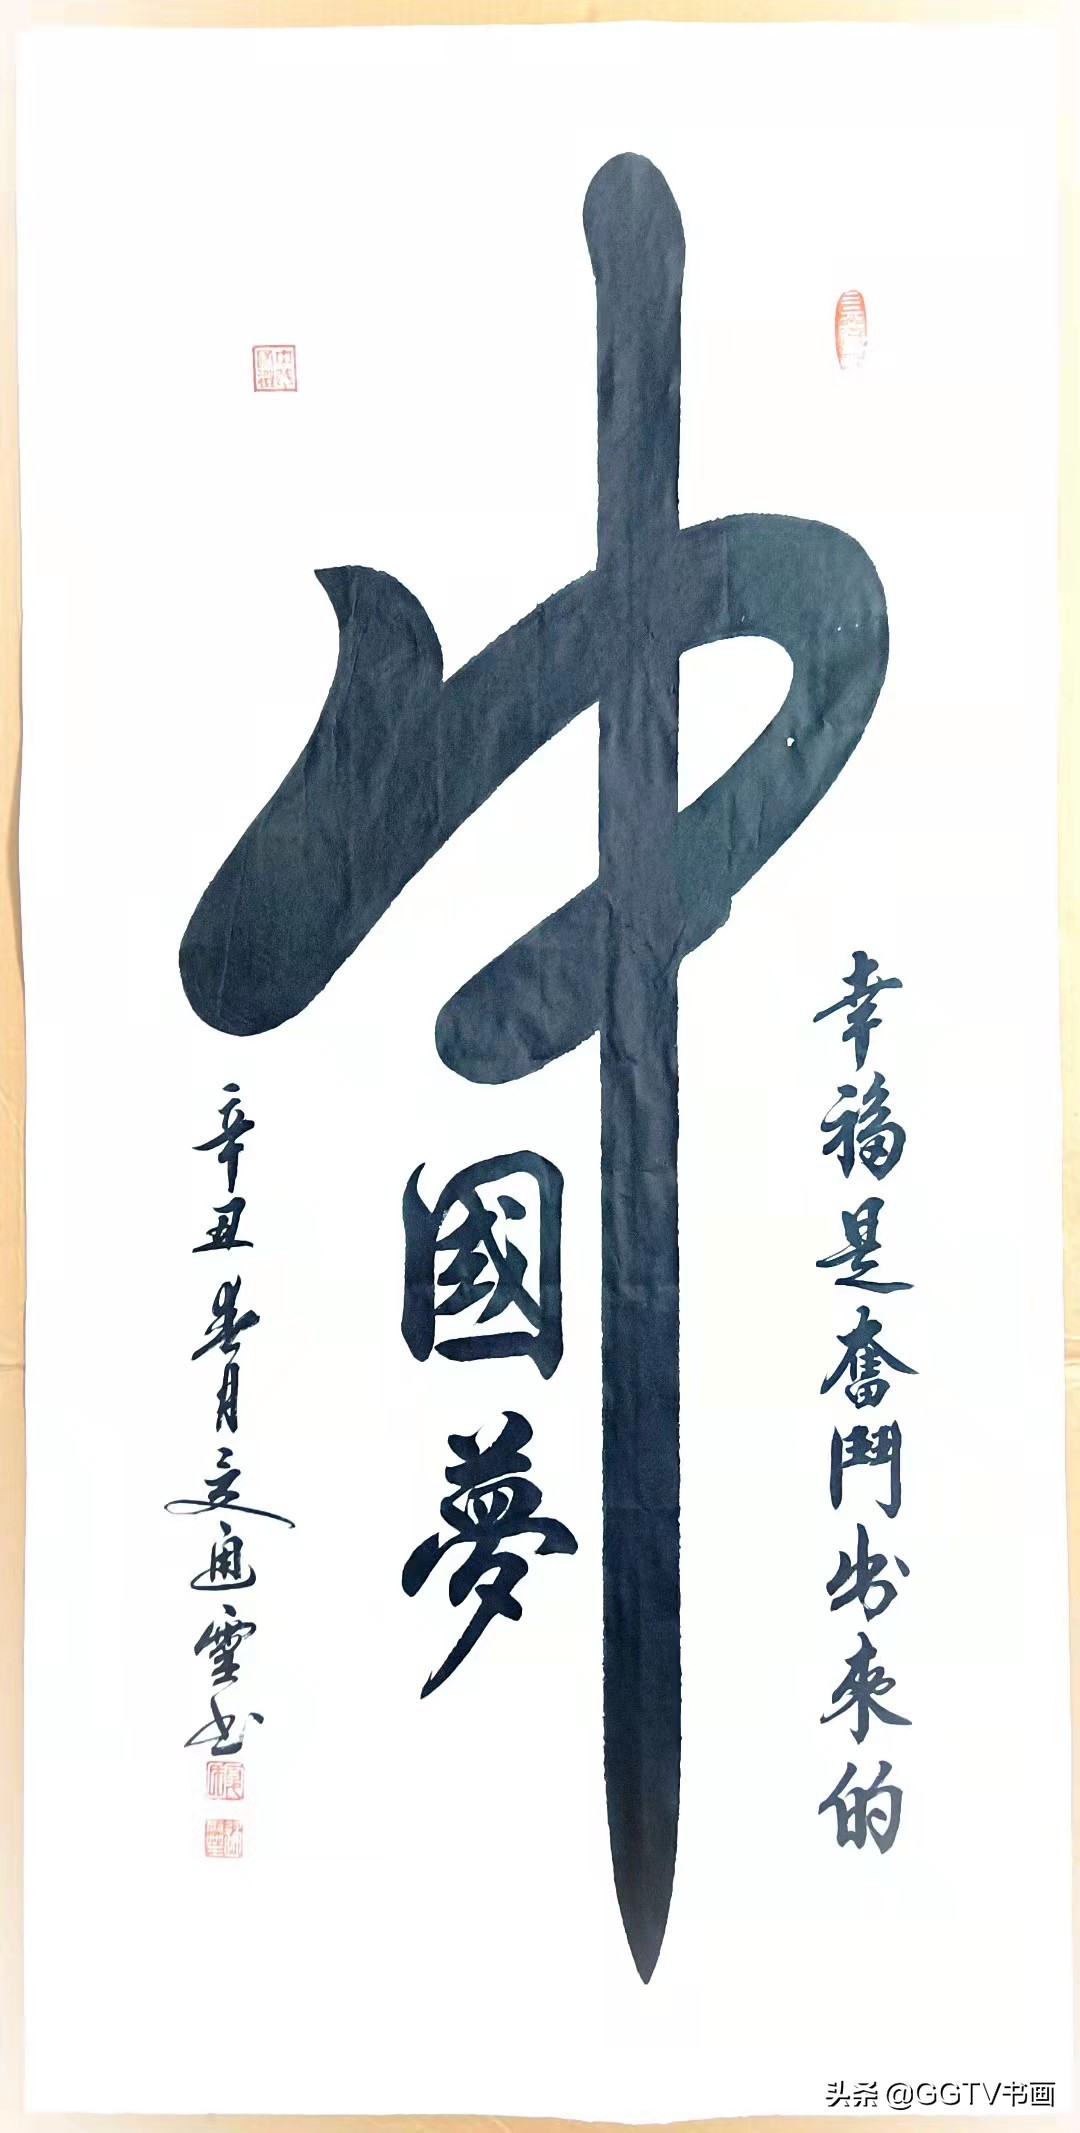 幸福是奮鬥出來的
中國夢
辛丑春月文通雲书
头条 @GGTV书画